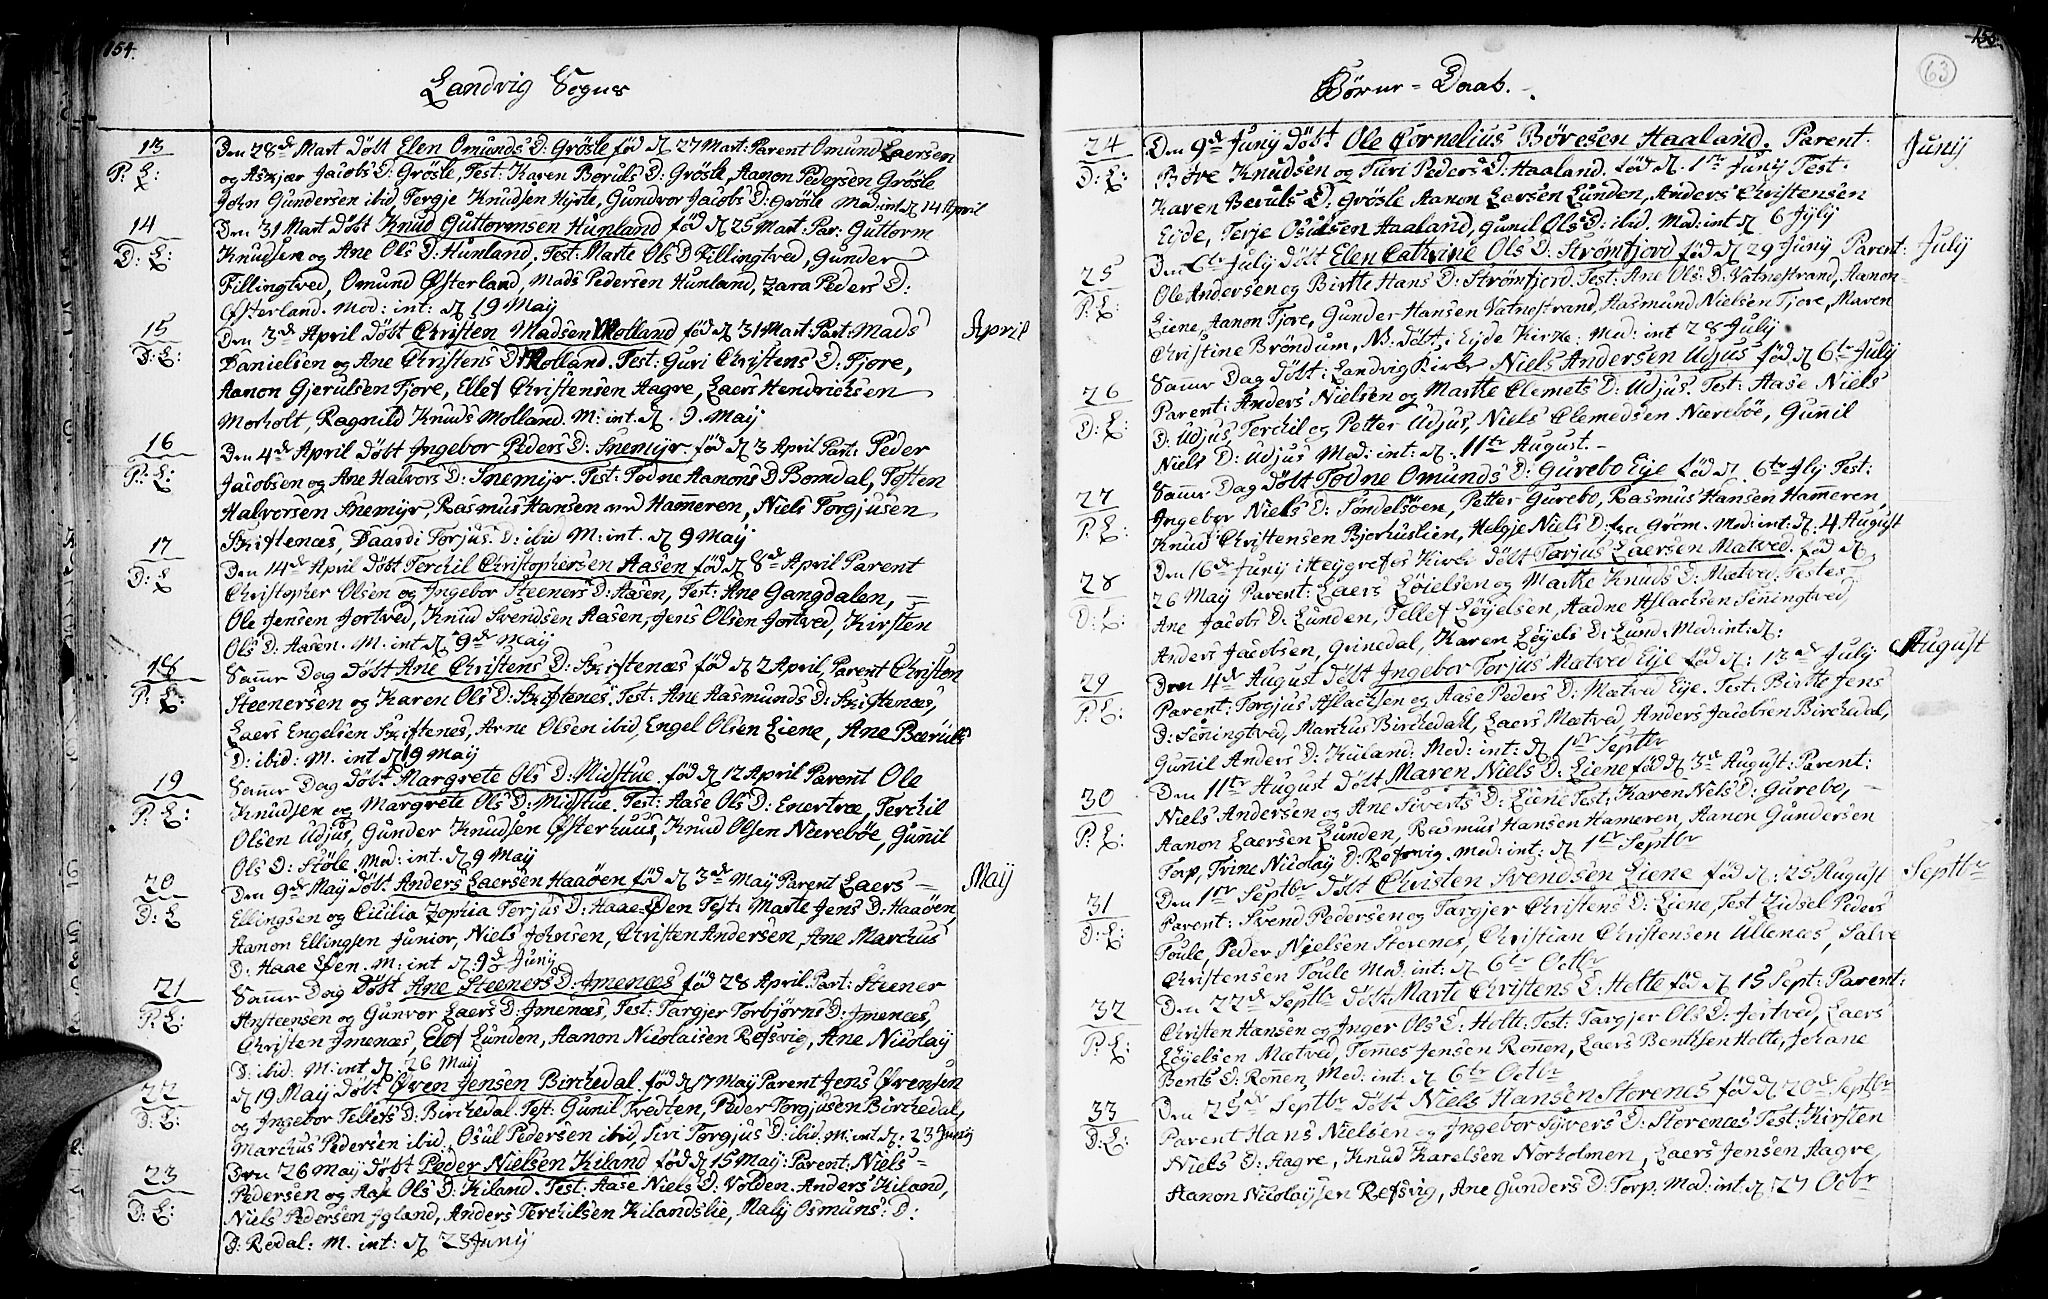 154.
Landvig Sogns
13
P: E:
Den 28de Mart döbt Elen Omunds D: Grösle föd d 27 Mart: Parent Omund Laersen
og Askjær Jacobs D: Grösle, Test: Karen Beruls D: Grösle, Aanon Pedersen Grösle
John Gundersen ibid, Tergje Knudsen Hyrte, Gundvor Jacobs D: Grösle Mod: int d 14 April
14
D: E:
Den 31 Mart döbt Knud Guttormsen Hunland föd d 25 Mart. Par: Guttorm
Knudsen og Ane Ols D: Hunland, Test: Marte Ols D Fillingtved, Gunder
Fillingtved, Omund Østerland, Mads Pedersen Hunland, Zara Peders D:
Østerland. Mod: int: d 19 Maij
15
D: E:
April
Den 3de April döbt Christen Madsen Molland föd d 31 Mart. Part: Mads
Danielsen og Ane Christens D: Molland. Test: Guri Christens D: Fjore,
Aanon Gjerulsen Fjore, Ellef Christensen Aagre, Laers Hendrichsen
Morholt, Ragnild Knuds Molland. M: int. d. 9. Maij
16
P: E:
Den 4de April döbt Ingebor Peders D: Snemijr. föd d 3 April Part: Peder
Jacobsen og Ane Halvors D: Snemijr. Test: Todne Aanons D Bomdal, Tosten
Halvorsen Snemijr, Rasmus Hansen ved Hameren, Niels Torgjusen
Skiftenæs, Taardi Torjus. D: ibid M: int. d 9 Maij
17
D: E
Den 14de April döbt Terchil Christophersen Aasen föd d 8de April Parent
Christopher Olsen og Ingebor Steeners D: Aasen, Test: Ane Gangdalen,
Ole Jensen Jortved, Knud Svendsen Aasen, Jens Olsen Jortved, Kirsten
Ols D: Aasen. M. int d 9de Maij
18
P: E:
Samme Dag döbt Ane Christens D: Skiftenæs föd d 2 April, Parent Christen
Steenersen og Karen Ols D: Skiftenes. Test: Ane Aasmunds D: Skiftenæs,
Laers Engelsen Skiftenes, Arne Olsen ibid, Engel Olsen Liene, Ane Bæruls
D: ibid: M. int d 19 Maij
19
P. E:
Samme Dag döbt Margrete Ols D: Midstue föd d 12 April Parent Ole
Knudsen og Margrete Ols D: Midstue. Test: Aase Ols D: Enertræ, Terchil
Olsen Udjus, Gunder Knudsen Østerhuus, Knud Olsen Nærebøe, Gunil
Ols D: Støle. Mod: int. d 9 Maij
20
D: E
Maij
Den 9de Maij döbt Anders Laersen Haaöen föd d 3de Maij Parent Laers
Ellingsen og Cicilia Zophia Terjus D: Haae-Øen Test: Marte Jens D: Haaöen,
Aanon Ellingsen Junior, Niels Johnsen, Christen Andersen, Ane Marchus
D: Haae Øen. M: int d: 9de Junij
21
P: E:
Samme Dag döbt Ane Steeners D: Imenæs föd 28 April. Part: Steener
Ansteensen og Gunvor Laers D: Imenæs, Test: Targjer Torbjørns D: Imenæs,
Christen Imenæs, Elof Lunden, Aanon Nicolaisen Refsvig, Ane Nicolaij
D: ibid: M: int d 26 Maij
22
D: E:
d 19 Maij döbt Øven Jensen Birchedal föd d 17 Maij Parent Jens Øvensen
og Ingebor Tellefs D: Birchedal. Test: Gunil Tvedten, Peder Torgjusen Birchedal,
Marchus Pedersen ibid, Osul Pedersen ibid, Siri Torgjus D: ibid: M: int d: 23 Junij
23
D: E:
Den 26 Maij döbt Peder Nielsen Kiland föd d 15 Maij: Parent: Niels
Pedersen og Aase Ols D: Kiland. Test: Aase Niels D: Volden. Anders Kiland,
Niels Pedersen Igland, Anders Terchilsen Kilandslie, Malij Osmuns: D:
D: Redal: M. int: d 23 Junij
155.
63
Børne-Daab.
24
D: E:
Junij
Den 9de Junij döbt Ole Cornelius Böresen Haaland. Parent.
Böre Knudsen og Turi Peders D: Haaland. föd d. 1te Junij Test:
Karen Beruls D. Grösle Aanon Larsen Lunden, Anders Christensen
Eyde, Terje Osulsen Haaland, Gunil Ols D: ibid. Mod: int d 6 Jyly
25
P: E:
July
Den 6te Julij döbt Elen Cathrine Ols D: Strömfjord föd d 29 Junij Parent:
Ole Andersen og Birtte Hans D: Strömfjord. Test: Ane Ols D: Vatnestrand, Aanon
Liene, Aanon Fjore, Gunder Hansen Vatnestrand, Aasmund Nielsen Fjore, Maren
Christine Bröndum, NB. döbt i Eyde Kirke: Mod: int 28 Julij
26
D: E:
Samme Dag döbt i Landvig Kirke Niels Andersen Udjus föd d 6te Julij
Parent: Anders Nielsen og Martte Clemets D: Udjus. Test: Aase Niels
D: Udjus, Terchil og Petter Udjus, Niels Clemedsen Nærebøe, Gunil
Niels D: Udjus Mod: int: d. 11te August.
27
P: E:
Samme Dag döbt Todne Omunds D: Gurebo Eije föd d. 6te Jlij Test:
Ingebor Niels D: Söndelsöen, Petter Gurebo, Rasmus Hansen Hameren,
Knud Christensen Bjoruslien, Helgje Niels D: fra Gröm. Mod: int: d. 4 August
28
D: E:
Den 16de Junij i Heygrefos Kirke döbt Tarjus Laersen Mætved. föd d.
26 Maij Parent: Laers Löielsen og Martte Knuds D: Mætved. Testes
Ane Jacobs D: Lunden, Tellef Löyelsen, Aadne Aslachsen Seningtved,
Anders Jacobsen, Grinedal, Karen Löyels D: Lund. Mod: int: d:
29
P: E:
August
Den 4de August döbt Ingebor Torjus Mætved Eije föd d: 13de Julij
Parent: Torgjus Aslachsen og Aase Peders D: Mætved Eije. Test: Birtte Jens
D: Seningtved, Marchus Birchedal, Laers Mætved, Anders Jacobsen Birchedal,
Gunil Anders D: Kiiland: Mod: int: d 1te Septbr
30
P: E:
Den 11te August döbt Maren Niels D: Liene föd d 3de August: Parent:
Niels Andersen og Ane Siverts D: Liene Test: Karen Niels D: Gurebo,
Aanon Laersen Lunden, Rasmus Hansen Hameren, Aanon Gundersen
Torp, Trine Nicolaij D: Refsvig. Mod: int: d 1te Septbr
31
D: E:
Septbr
Den 1te Septbr döbt Christen Svendsen Liene föd d: 25 August
Parent: Svend Pedersen og Targjer Christens D: Liene, Test Zidsel Peders
Foule, Peder Nielsen Storenes, Christian Christensen Ullenæs, Salve
Christensen Foule Mod: int: d 6te Octbr
32
P. E:
Den 22de Septbr döbt Marte Christens D: Holte föd d 15 Sept: Parent:
Christen Hansen og Inger Ols D: Holte: Test: Targjer Ols D: Jortved, Laers
Löyelsen Mætved, Temmes Jensen Rönen, Laers Benthsen Holte, Johane
Bents D: Rönen, Mod: int: d 6te Octbr
33
D: E:
Den 25de Septbr döbt Niels Hansen Storenes föd d 20de Septbr
Parent Hans Nielsen og Ingebor Syvers D: Storenæs Test: Kirsten
Niels D: Aagre, Knud Karelsen Norholmen, Laers Jensen Aagre,
Aanon Nicolaijsen Refsvig, Ane Gunders D: Torp. Mod: int: d 27 Octbr